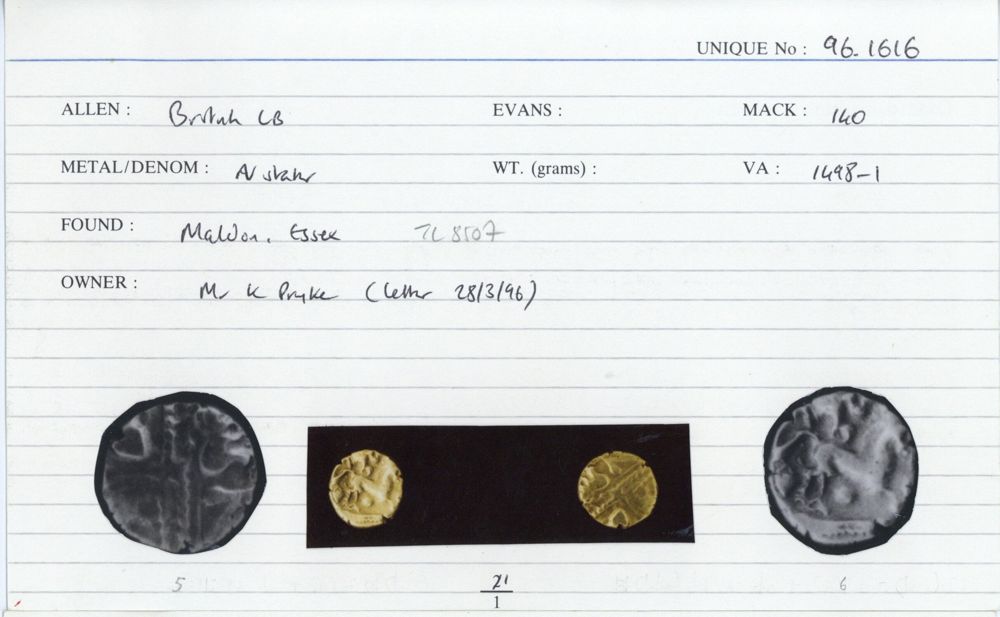 UNIQUE No : 96-1616
ALLEN : British LB EVANS : MACK : 140
METAL/DENOM : AV stater WT. (grams) : VA : 1498-1
FOUND : Maldon, Essex TL 8507
OWNER : Mr K Pryke (letter 28/3/96)
5 21 6
1